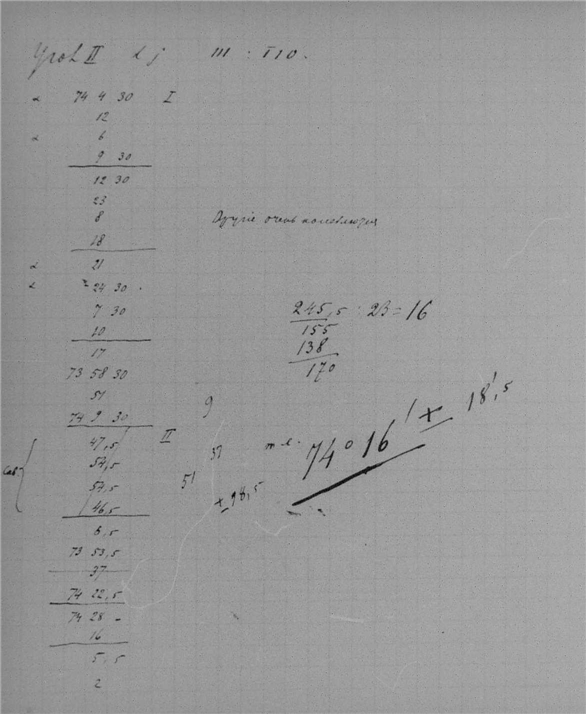 II
74 4 30 I
12
6
9 30
12 30
23
8
18
21
24 30
7 30
10
17
73 58 30
51
74 9 30
47,5 II
54,5
54,5
46,5
8,5
73 53,5
37
74 22,5
74 28 -
16
5,5
2
Другіе очень колеблются
245,5 : 23 = 16
155
138
170
9
37
51
74° 16' ± 18',5